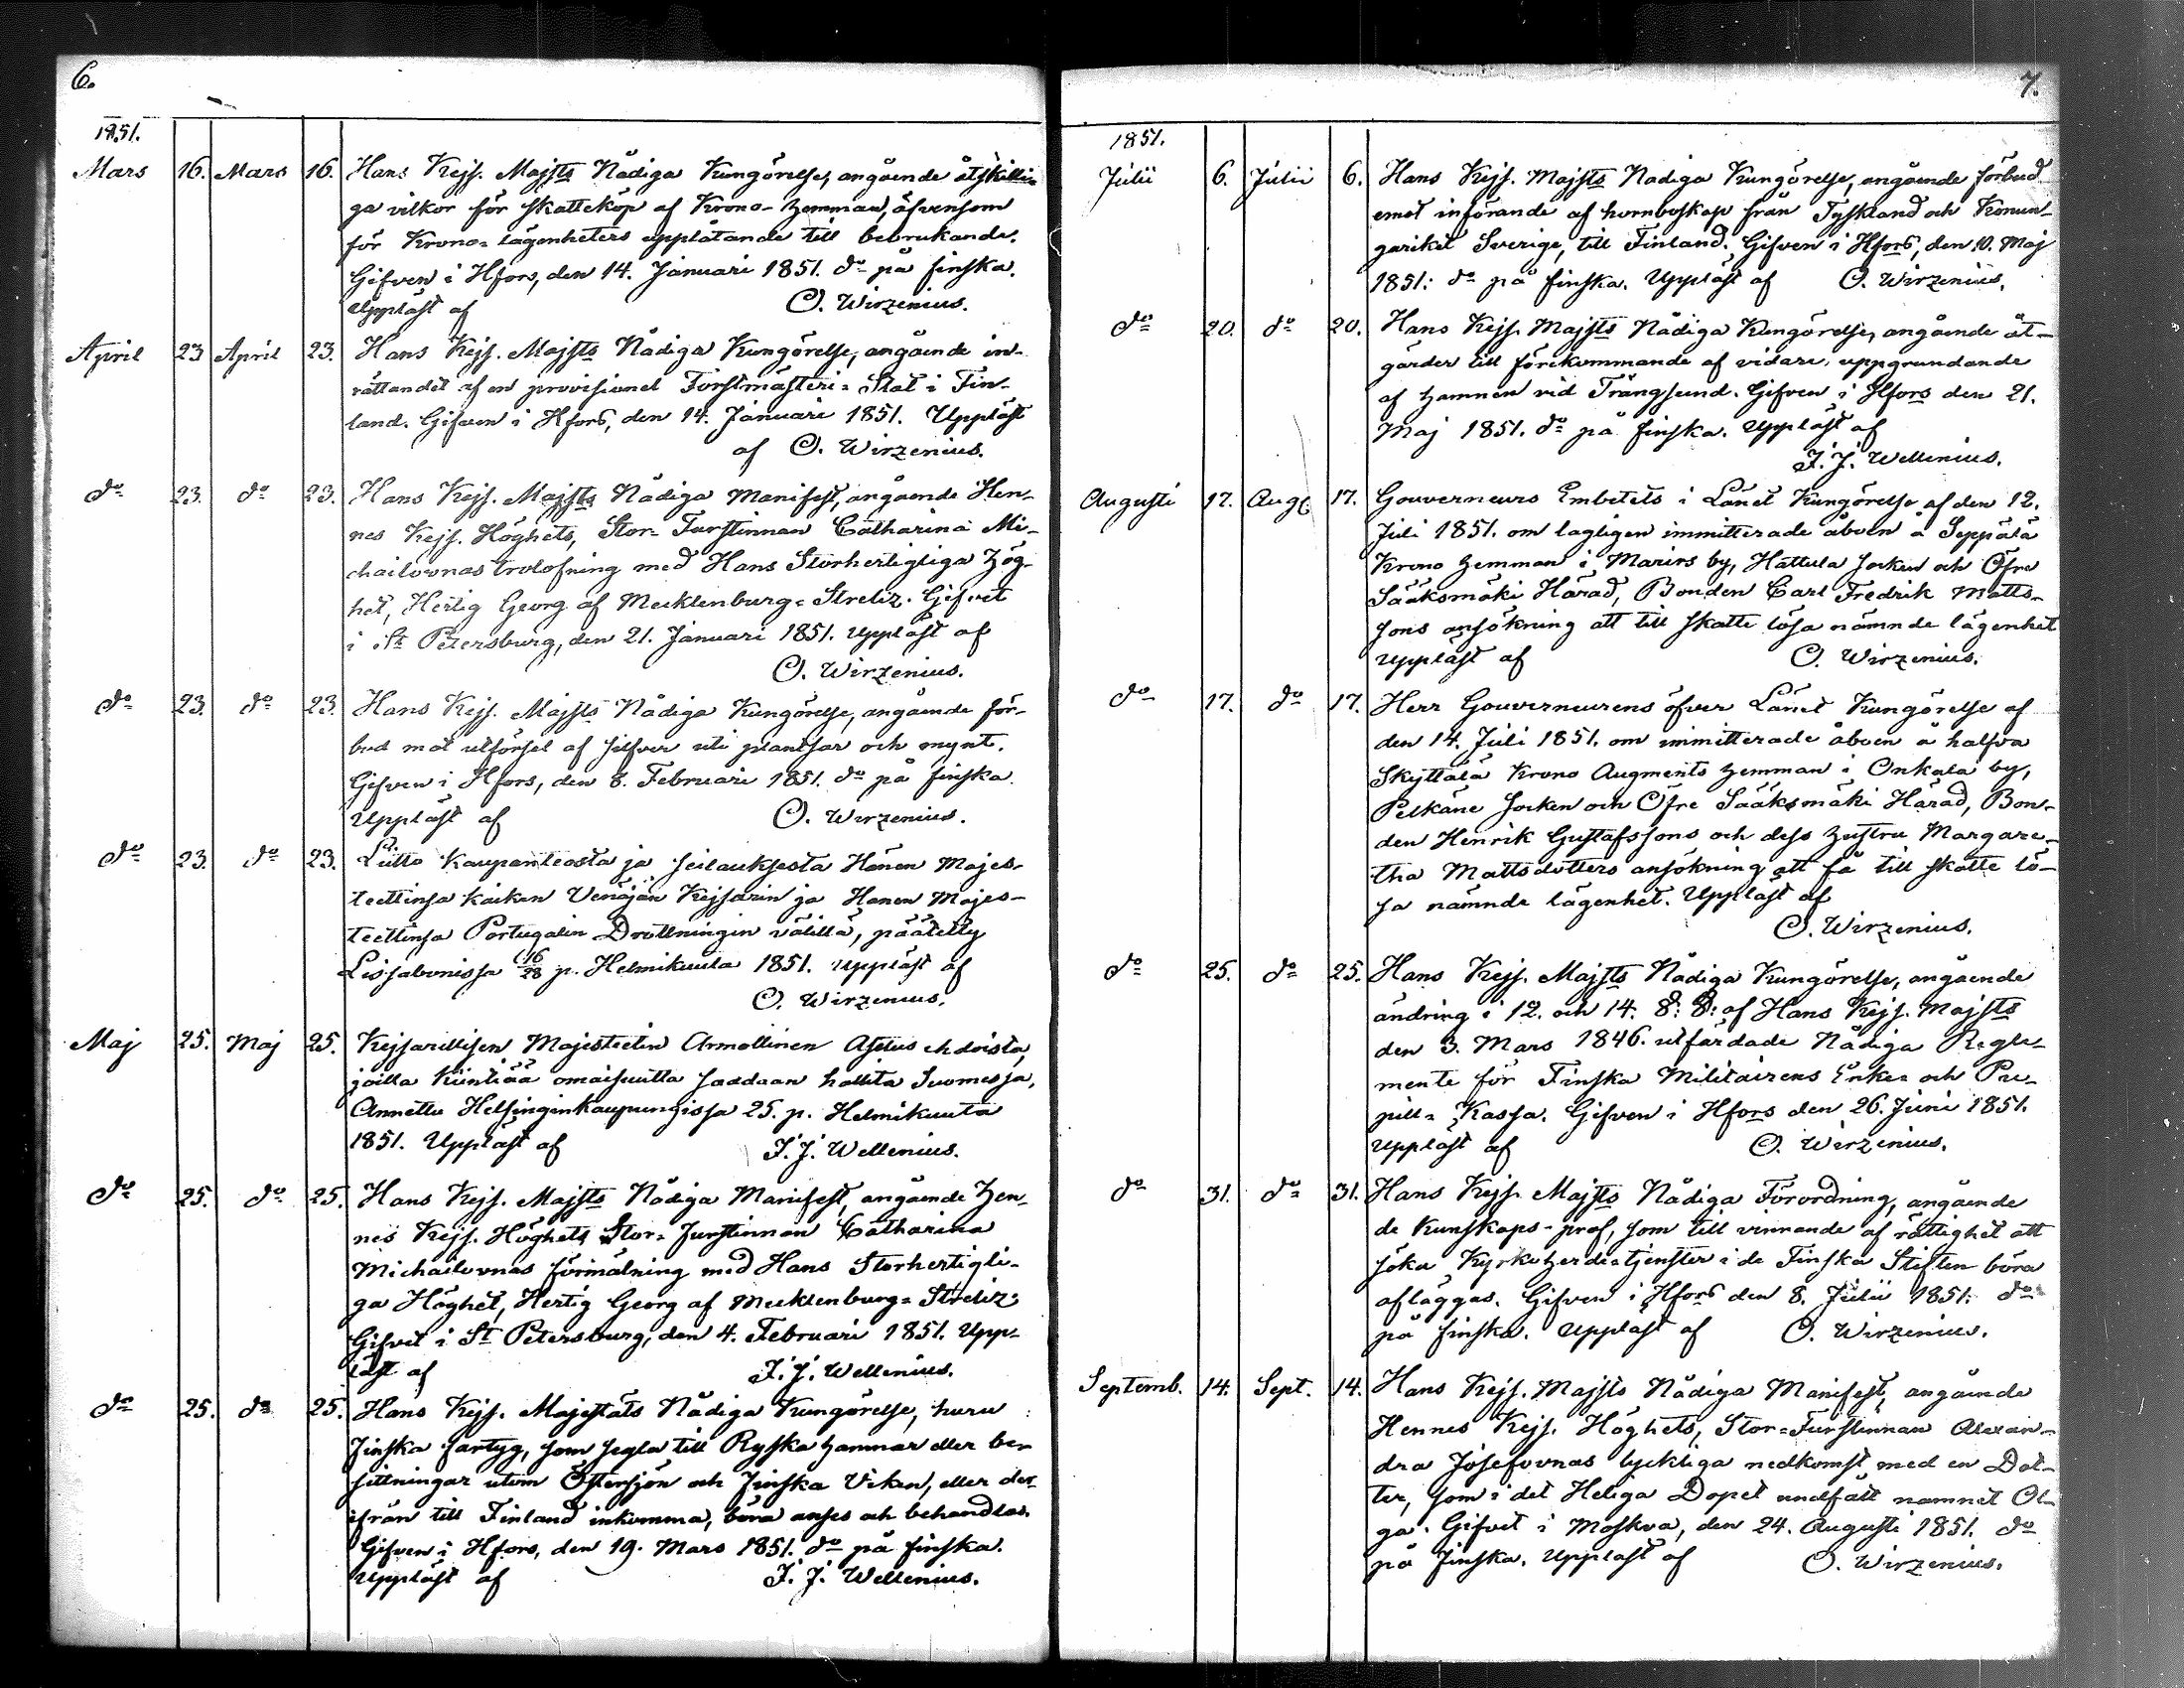 6.
1851.
Mars 16. Mars 16. Hans Kejs. Majsts Nådiga Kungörelse, angående åtskilli-
ga vilkor för skatteköp af Krono-hemman, äfvensom
för Krono-lägenheters upplåtande till bebrukande.
Gifven i Hfors, den 14. Januari 1851. do på finska.
Uppläst af O. Wirzenius.
April 23 April 23. Hans Kejs. Majsts Nådiga Kungörelse, angående in-
rättandet af en provisionel Forstmästeri-Stat i Fin-
land. Gifven i Hfors, den 14. Januari 1851. Uppläst
af O. Wirzenius.
do 23. do 23. Hans Kejs. Majsts Nådiga Manifest, angående Hen-
nes Kejs. Höghets, Stor-Furstinnan Catharina Mi-
chailovnas trolofning med Hans Storhertigliga Hög-
het, Hertig Georg af Mecklenburg-Streliz. Gifvet
i St Petersburg, den 21. Januari 1851. Uppläst af
O. Wirzenius.
do 23. do 23. Hans Kejs. Majsts Nådiga Kungörelse, angående för-
bud mot utförsel af silfver uti plantsar och mynt.
Gifven i Hfors, den 8. Februari 1851. do på finska.
Uppläst af O. Wirzenius.
do 23. do 23. Liitto Kaupanteosta ja seilauksesta Hänen Majes-
teettinsa Kaiken Venäjän Kejsarin ja Hänen Majes-
teettinsa Portugalin Drottningin välillä, päätetty
Lissabonissa 16/28 p. Helmikuuta 1851. Uppläst af
O. Wirzenius.
Maj 25. Maj 25. Kejsarillisen Majesteetin Armollinen Asetus ehdoista,
joilla Kiinteää omaisuutta saadaan hallita Suomessa,
Annettu Helsinginkaupungissa 25. p. Helmikuuta
1851. Uppläst af F. J. Wellenius.
do 25. do 25. Hans Kejs. Majsts Nådiga Manifest, angående Hen-
nes Kejs. Höghets Stor-Furstinnan Catharina
Michailovnas förmälning med Hans Storhertigli-
ga Höghet, Hertig Georg af Mecklenburg-Streliz.
Gifvet i St Petersburg, den 4. Februari 1851. Upp-
läst af F. J. Wellenius.
do 25. do 25. Hans Kejs. Majestäts Nådiga Kungörelse, huru
Finska fartyg, som segla till Ryska hamnar eller be-
sittningar utom Östersjön och Finska Viken, eller der-
ifrån till Finland inkomma, böra anses och behandlas.
Gifven i Hfors, den 19. Mars 1851. do på finska.
Uppläst af F. J. Wellenius.
7.
1851.
Julii 6. Julii 6. Hans Kejs. Majsts Nådiga Kungörelse, angående förbud
emot införande af hornboskap från Tyskland och Konun-
gariket Sverige, till Finland. Gifven i Hfors, den 10. Maj
1851: do på finska. Uppläst af O. Wirzenius.
do 20. do 20. Hans Kejs. Majsts Nådiga Kungörelse, angående åt-
gärder till förekommande af vidare uppgrundande
af hamnen vid Trångsund. Gifven i Hfors den 21.
Maj 1851. do på finska. Uppläst af
F. J. Wellenius.
Augusti 17. Aug. 17. Gouverneurs Embetets i Länet Kungörelse af den 12.
Juli 1851. om lagligen immitterade åboen å Seppälä
Krono hemman i Marirs by, Hattula Socken och Öfre
Sääksmäki Härad, Bonden Carl Fredrik Matts-
sons ansökning att till skatte lösa nämnde lägenhet
Uppläst af O. Wirzenius.
do 17. do 17. Herr Gouverneurens öfver Länet Kungörelse af
den 14. Juli 1851. om immitterade åboen å halfva
Skyttälä Krono Augments hemman i Onkala by,
Pelkäne Socken och Öfre Sääksmäki Härad, Bon-
den Henrik Gustafssons och dess hustru Margare-
tha Mattsdotters ansökning att få till skatte lö-
sa nämnde lägenhet. Uppläst af
O. Wirzenius.
do 25. do 25. Hans Kejs. Majsts Nådiga Kungörelse, angående
ändring i 12. och 14. §: §: af Hans Kejs. Majsts
den 3. Mars 1846. utfärdade Nådiga Regle-
mente för Finska Militairens Enke- och Pu-
pill-Kassa. Gifven i Hfors den 26. Juni 1851.
Uppläst af O. Wirzenius.
do 31. do 31. Hans Kejs. Majsts Nådiga Förordning, angående
de Kunskaps-prof, som till vinnande af rättighet att
söka Kyrkoherde-tjenster i de Finska Stiften böra
afläggas. Gifven i Hfors den 8. Julii 1851: do
på finska. Uppläst af O. Wirzenius.
Septemb. 14. Sept. 14. Hans Kejs. Majsts Nådiga Manifest, angående
Hennes Kejs. Höghets, Stor-Furstinnan Alexan-
dra Josefovnas lyckliga nedkomst med en Dot-
ter, som i det Heliga Dopet undfått namnet Ol-
ga. Gifvet i Moskva, den 24. Augusti 1851. do
på finska. Uppläst af O. Wirzenius.